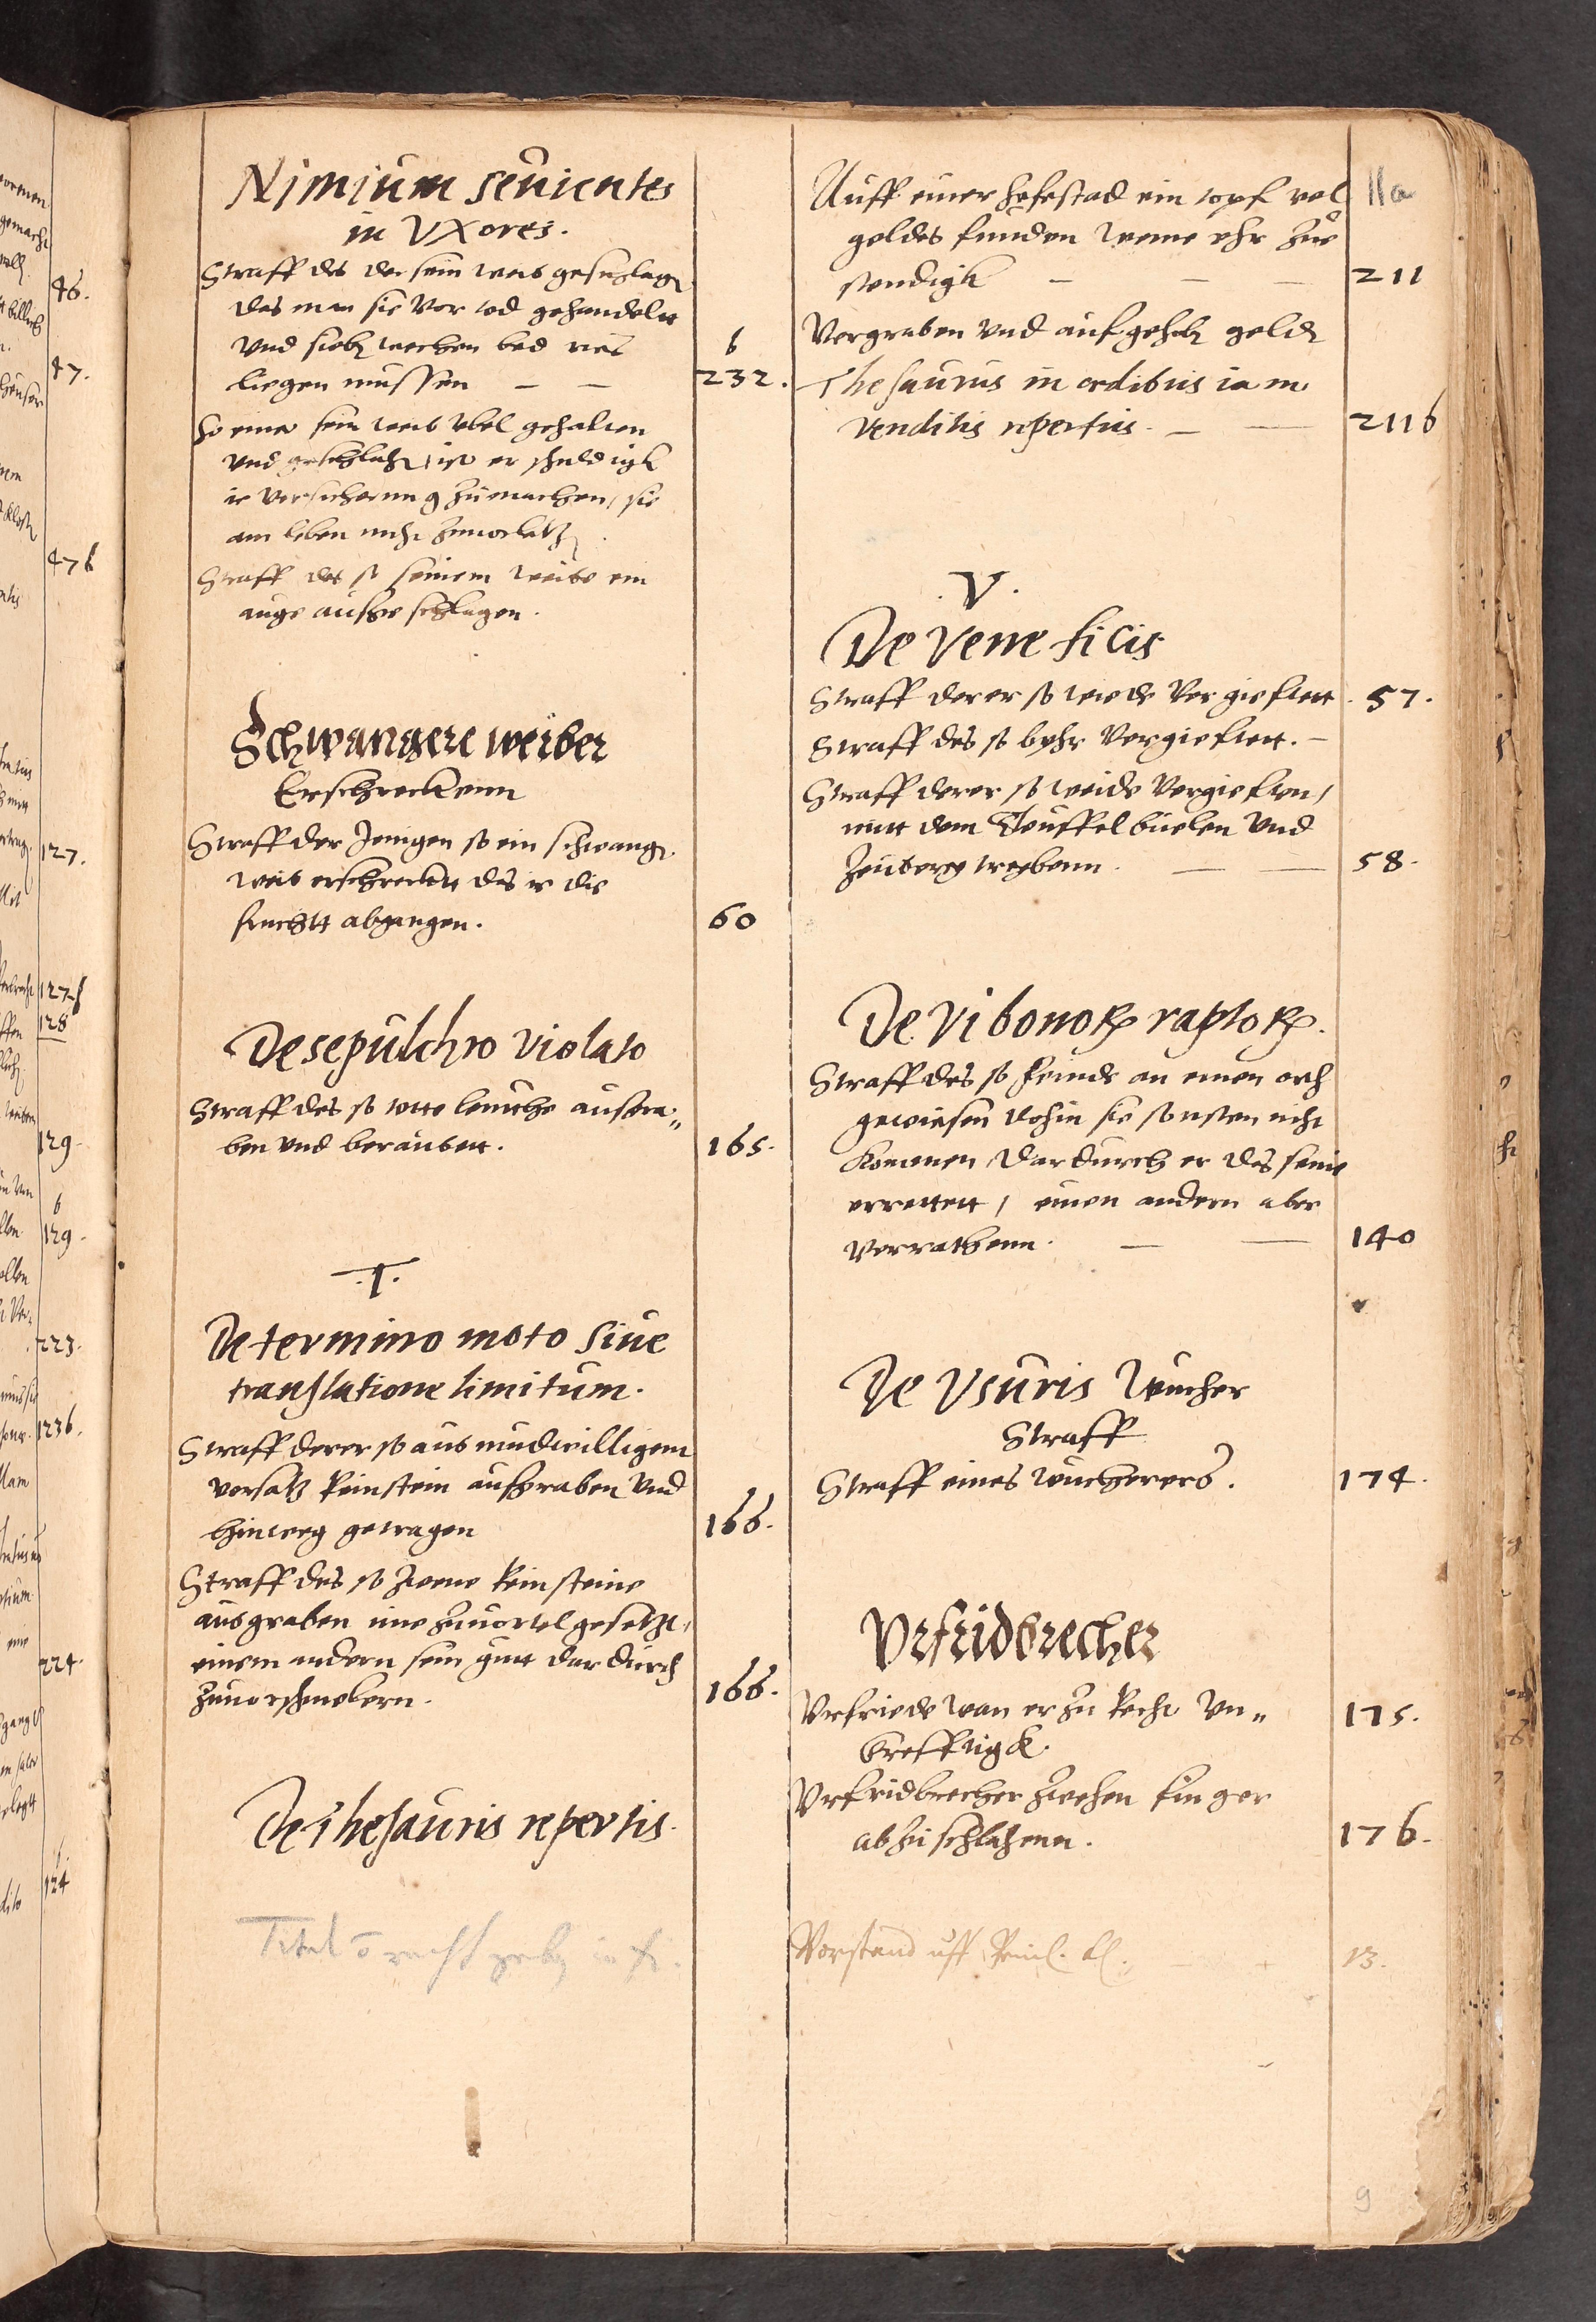 Nimium seuientes
in Vxores.
Straff des der sein weib geschlagen
das man sie vor tod gehandelt
und sieben wochen bed ries
liegen mussen — —
b
232.
So einer sein weib ubel gehalten
und geschlahen, ist er schuldigk
ir versicherung zu machen, sie
am leben nicht zuuorletzen.
Straff des so seinem weibe ein
auge aussge schlagen.
Schwangere weiber
Erschreckenn
Straff der Jenigen so ein schwanger
weib erschreckett das ir die
fruchtt abgangen.
60
De sepulchro violato
Straff des so totte leuthe aussgra„
ben und beraubett.
165.
.T.
De termino moto siue
translatione limitum.
Straff derer so aus mudwilligem
vorsatz Reinstein aussgraben und
hinweg getragen
166.
Straff des so zwene Reinsteine
ausgraben ime zuuortel gesetzt,
einem andern sein gutt dar durch
zuuorschmelern.
166.
De Thesauris repertis.
Titel
11a
Auff einer hofestad ein topf vol
geldes funden weme ehr zue
stendigk — — —
211
Vergraben und aufgehoben geldt
Thesaurus in aedibus iam
venditis repertus. — —
211b
.V.
De Veneficis
Straff derer so weide vergiefftett.
57.
Straff des so byhr vergiefftett. —
Straff derer so weide vergiefften,
mitt dem Teuffel buelen und
Zeuberey treybenn. — —
58.
De Vi bonorum raptorum.
Straff des so feinde an einen orth
gewiesen dohin sie sonsten nicht
komenen, dardurch er das seine
errettett, einen andern aber
verrathenn. — —
140
De Vsuris Wucher
Straff
Straff eines wucherers.
174.
Vrfridbrecher
Vrfriede wan er zu Recht vn„
krefftigk.
175.
Vrfridbrecher zwehen finger
abzuschlahenn.
176.
Vorstand uff
13.
9
46.
47.
47b
127.
127b
128
129.
b
129.
223.
223b.
224.
124